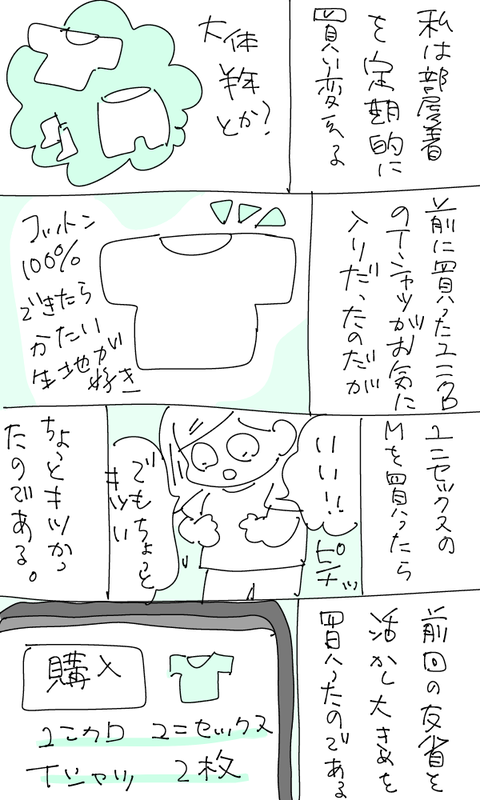 私は部屋着
を定期的に
買い変える
大体
半年
とか?
前に買ったユニクロ
のTシャツがお気に
入りだったのだが
コットン
100%
できたら
かたい
生地が
好き
ユニセックスの
Mを買ったら
いい!!
ピチッ
でもちょっと
キツい
ちょっとキツかっ
たのである。
前回の反省を
活かし大きめを
買ったのである
購入
ユニクロ ユニセックス
Tシャツ 2枚